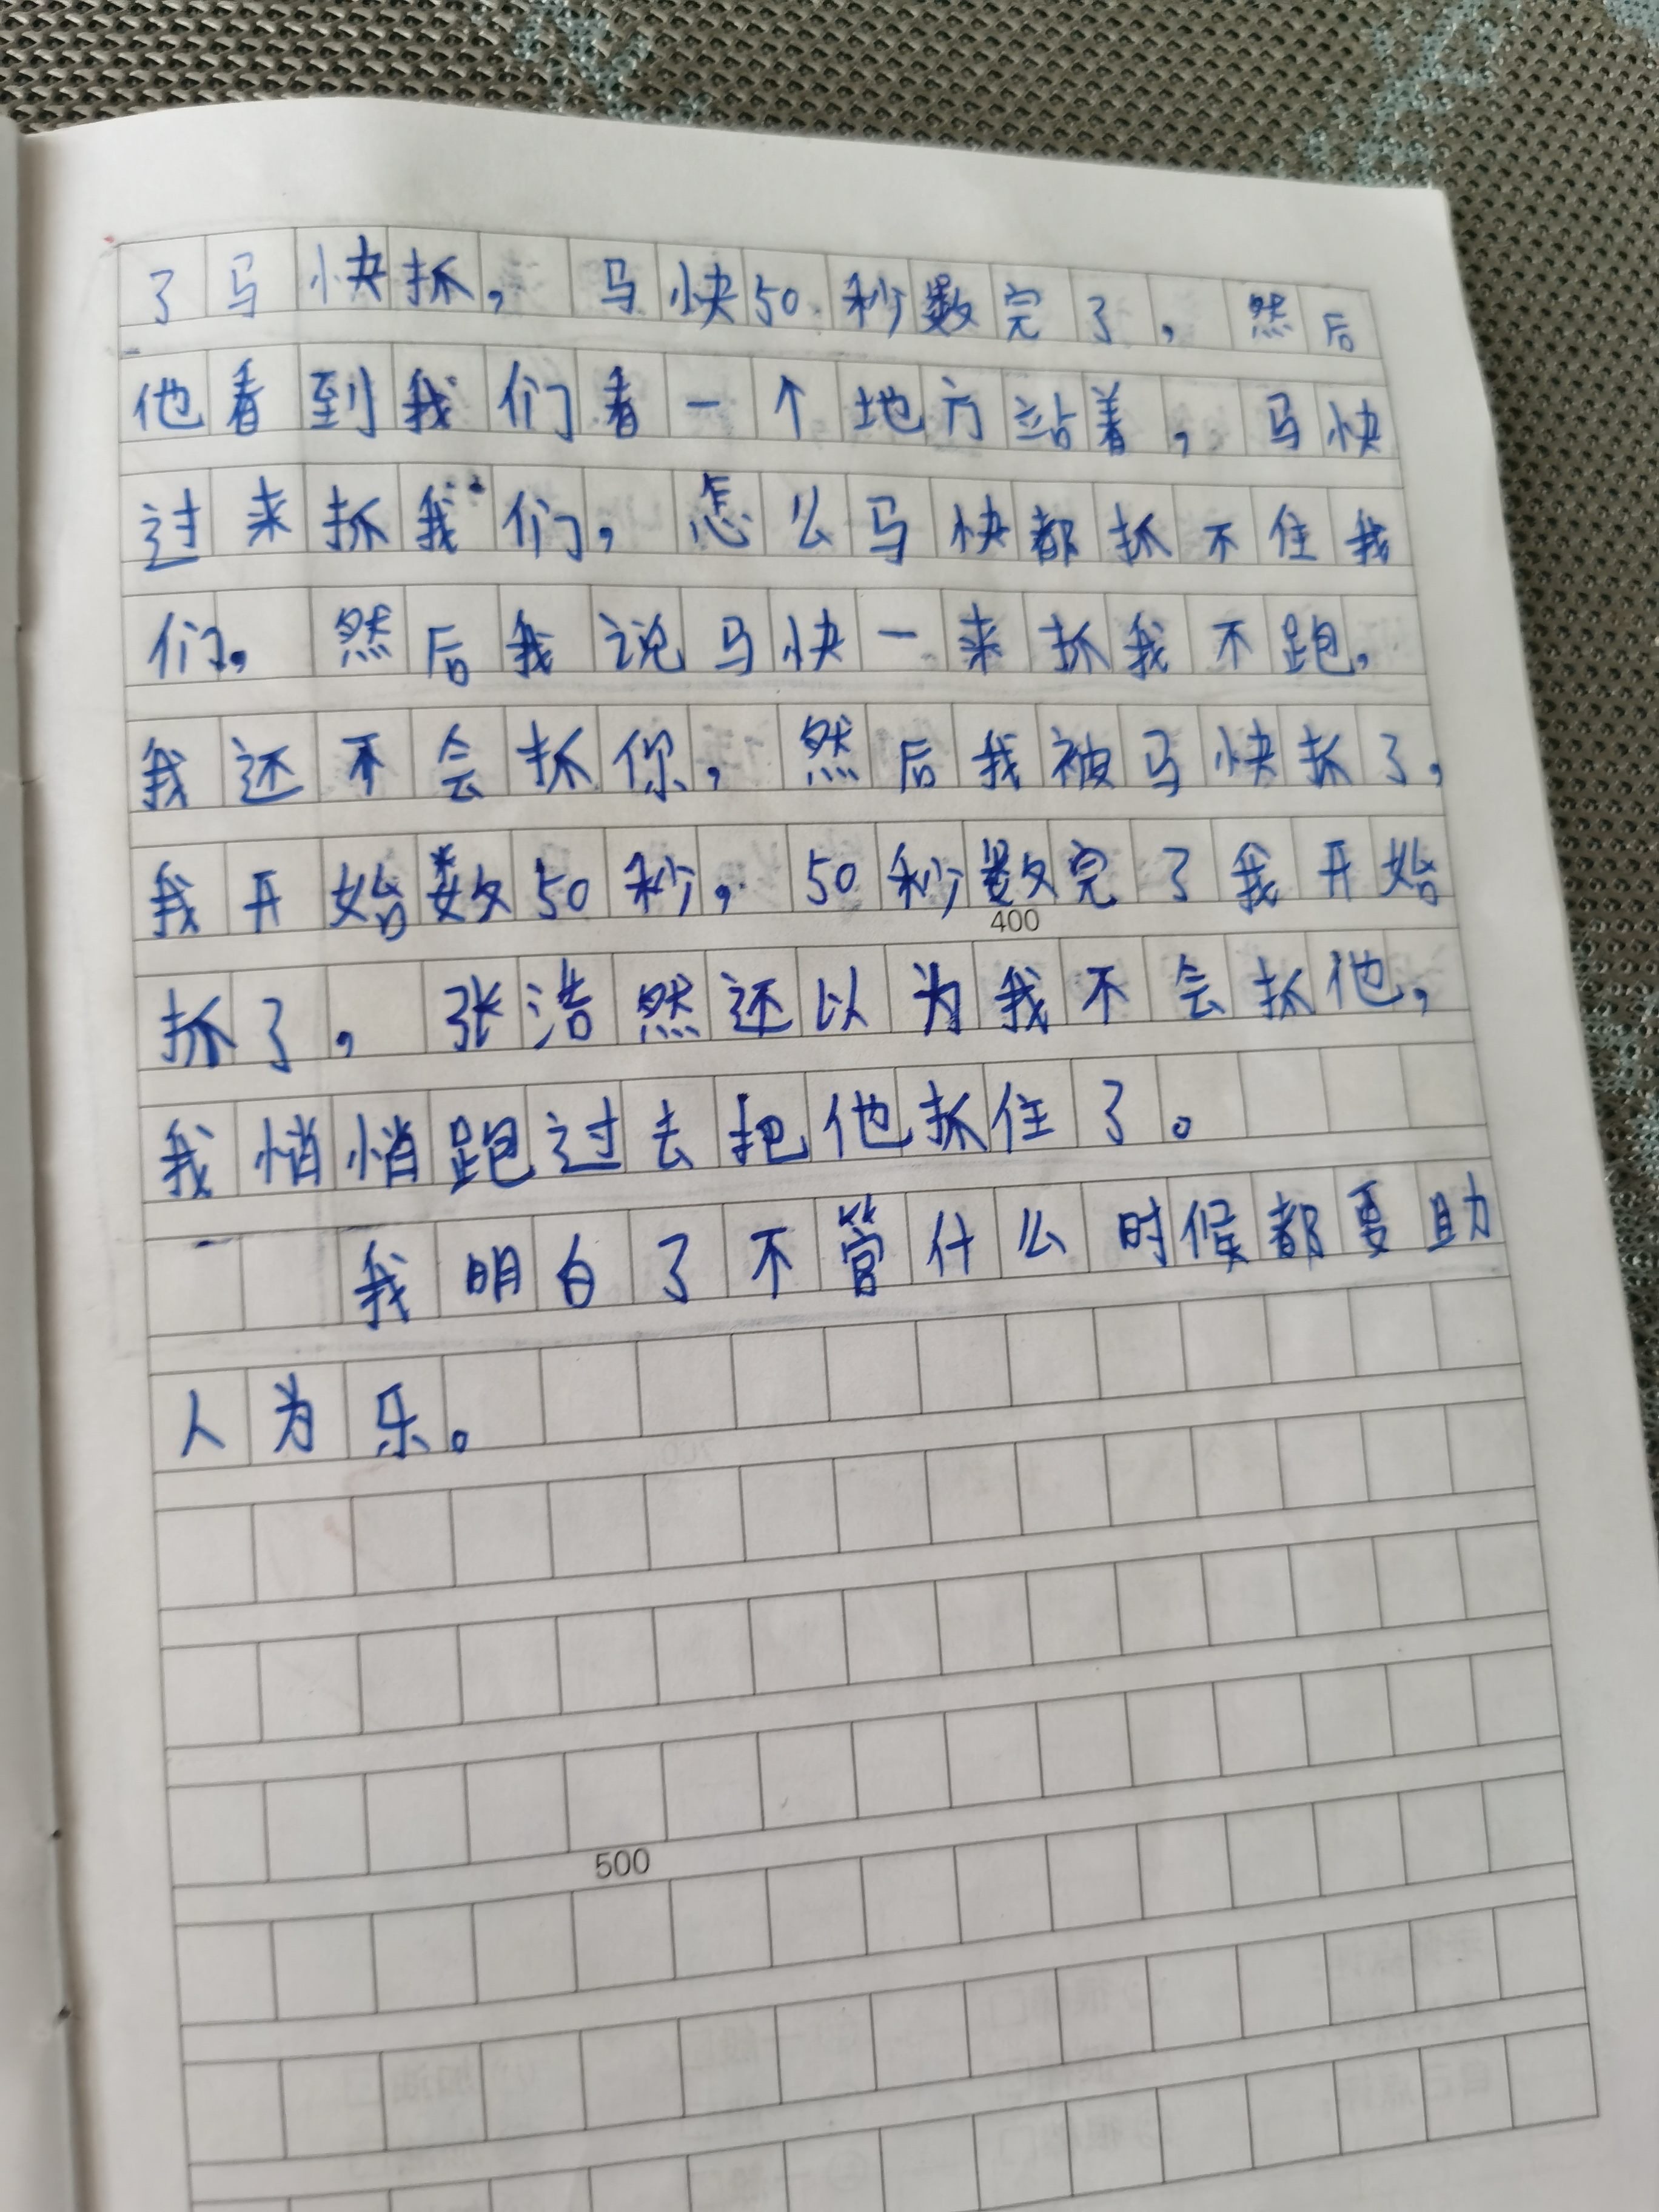 了马快抓，马快50秒数完了，然后
他看到我们看一个地方站着，马快
过来抓我们，怎么马快都抓不住我
们，然后我说马快一来抓我不跑，
我还不会抓你，然后我被马快抓了，
我开始数50秒，50秒数完了我开始
400
抓了，张浩然还以为我不会抓他，
我悄悄跑过去把他抓住了。
我明白了不管什么时候都要助
人为乐。
500